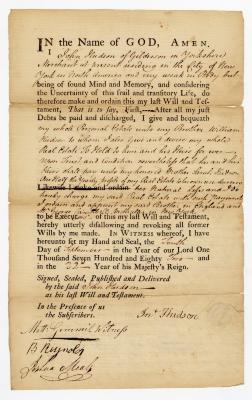 IN the Name of GOD, AMEN.
I John Hudson of Gildersom in Yorkshire
Merchant at present residing in the City of New
York in North America and very weak in Body but
being of sound Mind and Memory, and considering
the Uncertainty of this frail and transitory Life, do
therefore make and ordain this my last Will and Tes-
tament, That is to say, First, After all my just
Debts be paid and discharged, I give and bequeath
my whole Personal Estate unto my Brother William
Hudson to whom I also Give my whole
Real Estate To Hold to him and his Heirs for ever
upon Trust and Condition nevertheless that he and his
Heirs shall pay unto my Brother
half
Likewise I make and ordain her Natural Life and I do
hereby charge my said Real Estate with such Payment
I ordain and appoint my said Brother in England and
to be Executors of this my last Will and Testament,
hereby utterly disallowing and revoking all former
Wills by me made. In WITNESS whereof, I have
hereunto set my Hand and Seal, the Tenth
Day of September in the Year of our Lord One
Thousand Seven Hundred and Eighty Two and
in the 22d Year of his Majesty's Reign.
Signed, Sealed, Published and Delivered
by the said John Hudson
as his last Will and Testament.
In the Presence of us
the Subscribers.
Jno. Hudson
Witness
B Reynolds
Joshua